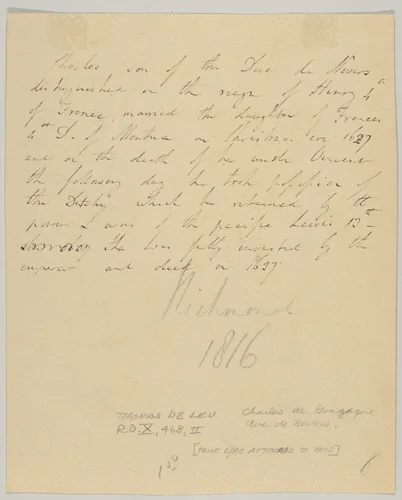 Charles son of the Duc de Nevers
distinguished in the reign of Henry 4th
of France, married the daughter of Francis
4th D. of Mantua on Christmas eve 1627
and on the death of her uncle Vincent
the following day he took possession of
the Dutchy which he retained by the
power & arms of the pacific Lewis 13th
he was fully invested by the
emperor and died in 1637
Richmond
1816
THOMAS DE LEU
R.D. X, 468, II
Charles de Gonzague
duc de Nevers.
[PRINT ALSO ATTACHED TO THIS]